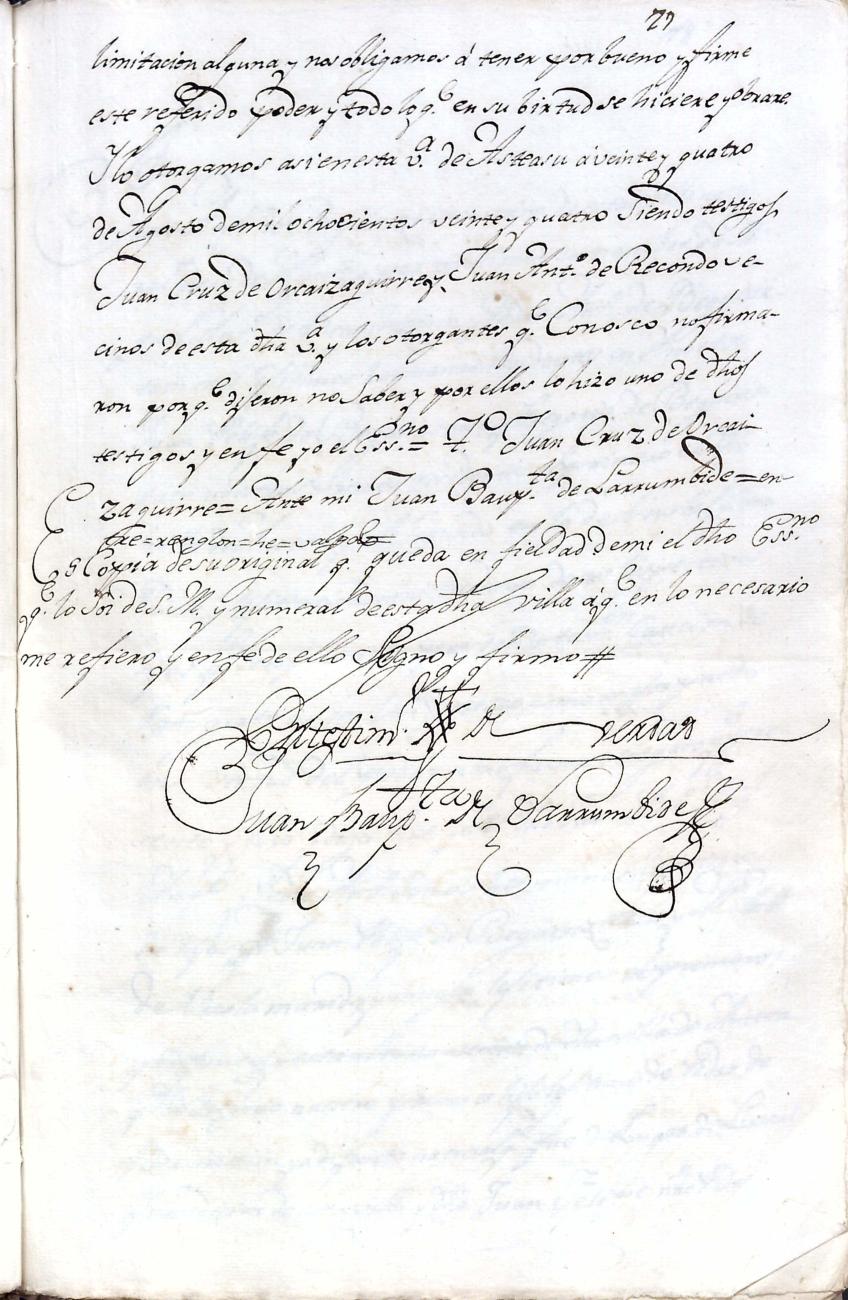 27
limitacion alguna y nos obligamos á tener por bueno y firme
este referido poder y todo lo q.e en su birtud se hiciere y obrare.
Y lo otorgamos asi en esta v.a de Asteasu á veinte y quatro
de Agosto de mil ochocientos veinte y quatro siendo testigos
Juan Cruz de Orcaizaguirre y Juan Ant.o de Recondo ve-
cinos de esta dha v.a y los otorgantes q.e Conosco no firma-
ron porq.e dijeron no Saber y por ellos lo hizo uno de dhos
testigos y en fe yo el Ess.no = T.o Juan Cruz de Orcai-
zaguirre = Ante mi Juan Baup.ta de Larrumbide = en-
tre = renglon = he = valga =
Es Coppia de su original q. queda en fieldad de mi el dho Ess.no
q.e lo Soi de S. M. y numeral de esta dha villa á q.e en lo necesario
me refiero, y en fe de ello Signo y firmo #
En testim.o de verdad
Juan Baup.ta de Larrumbide